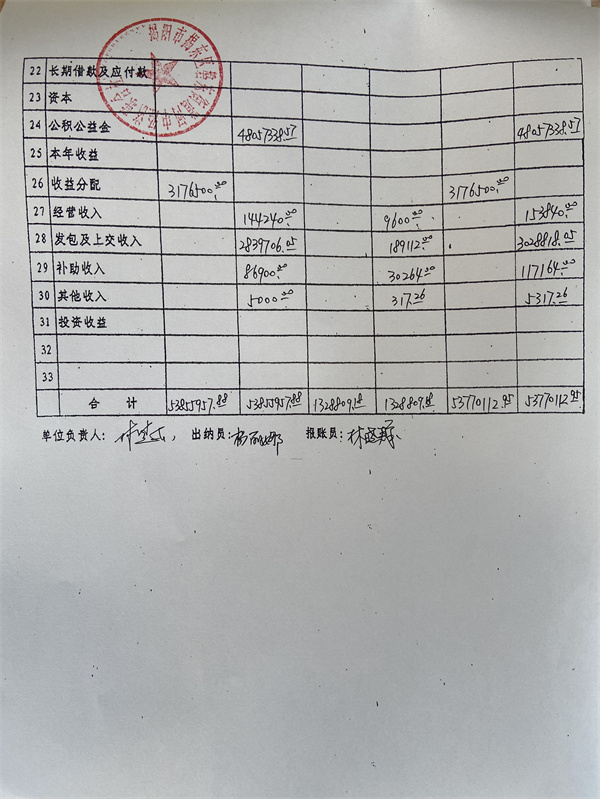 揭阳市揭东区
22 长期借款及应付款
23 资本
24 公积公益金 48057338.57 48057338.57
25 本年收益
26 收益分配 3176500.00 3176500.00
27 经营收入 144240.00 9600.00 153840.00
28 发包及上交收入 2839706.05 189112.00 3028818.05
29 补助收入 86900.00 30264.00 117164.00
30 其他收入 5000.00 317.26 5317.26
31 投资收益
32
33
合计 53855957.88 53855957.88 1328809.18 1328809.18 53770112.95 53770112.95
单位负责人： 出纳员： 报账员：